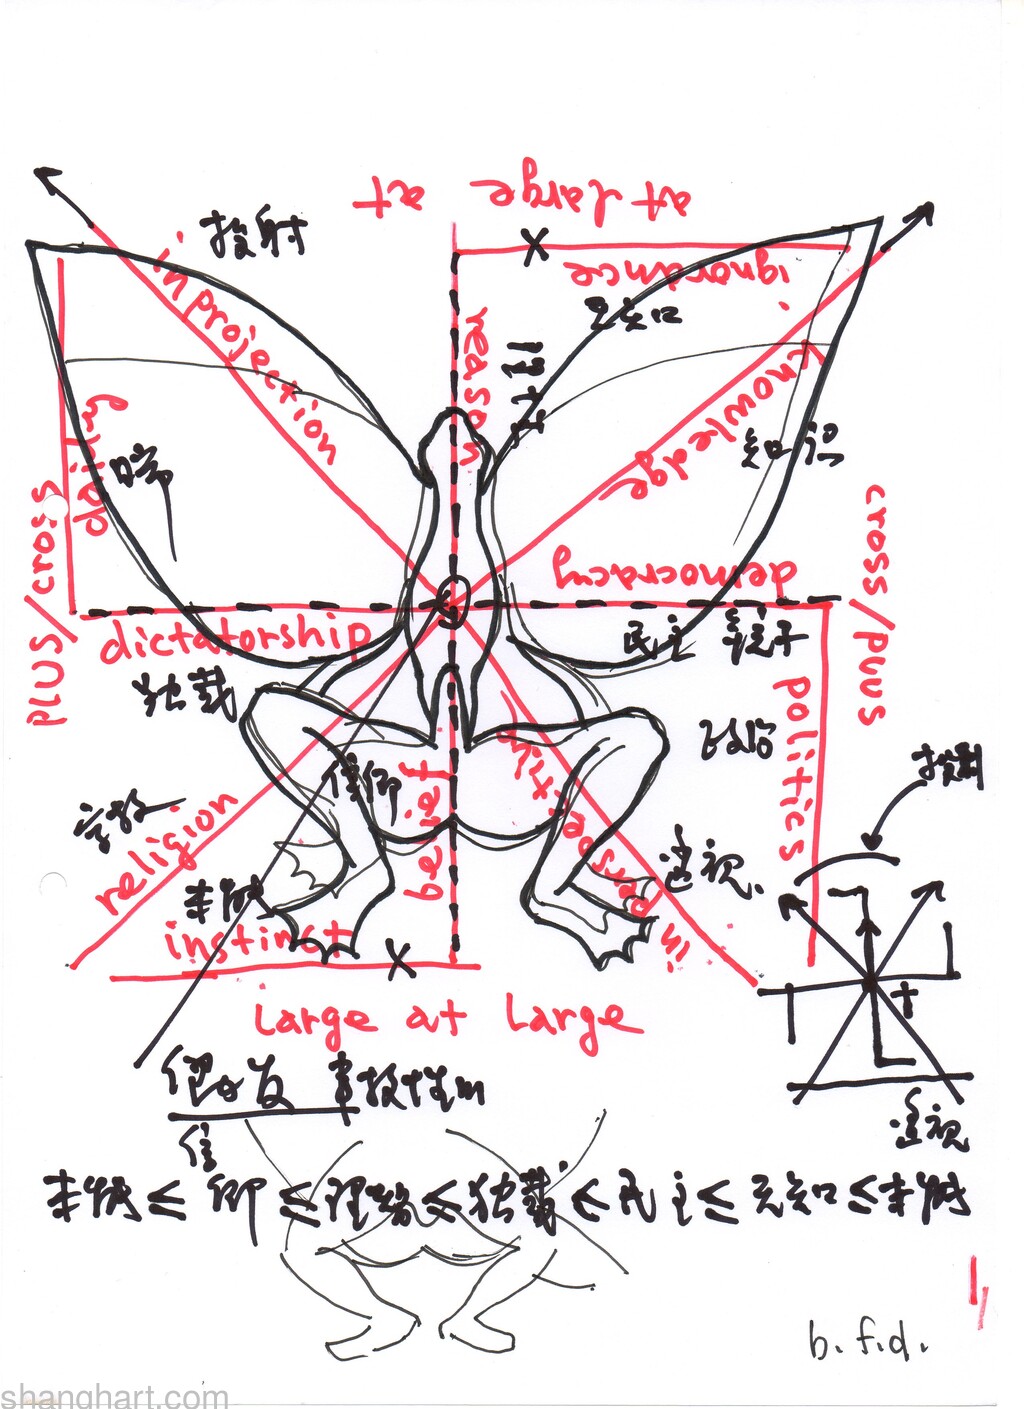 at large
act
投射
in projection
ignorance
无知
reason
理性
knowledge
知识
daily
PLUS/cross
cross/PLUS
democracy
dictatorship
民主
独裁
政治
politics
信仰
belief
宗教
religion
in perspective
透视.
投射
本能
instinct
Large at Large
透视
信
本能 ≤ 仰 ≤ 理 < 独裁 < 民主 ≤ 无知 ≤ 本能
b. f. d.
shanghart.com